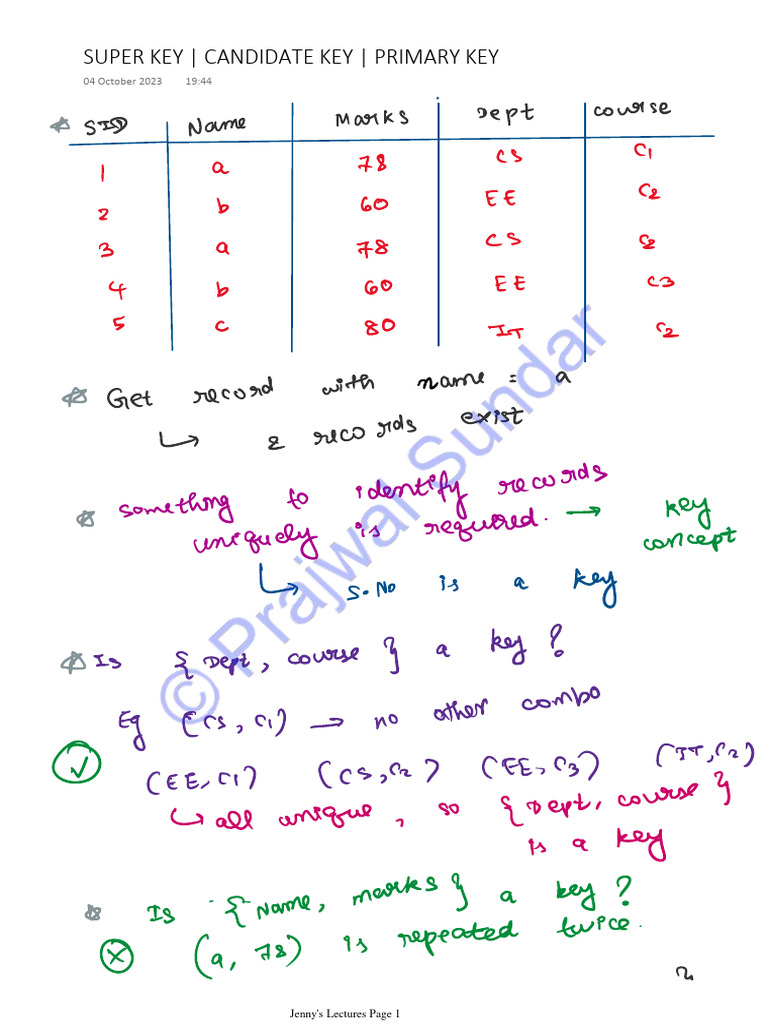 SUPER KEY | CANDIDATE KEY | PRIMARY KEY
04 October 2023 19:44
SID Name Marks Dept course
1 a 78 CS C1
2 b 60 EE C2
3 a 78 CS C2
4 b 60 EE C3
5 c 80 IT C2
Get record with name = a
↳ 2 records exist
something to identify records
uniquely is required. → key
concept
↳ S.No is a key
Is {Dept, course} a key?
Eg (CS, C1) → no other combo
(EE, C1) (CS, C2) (EE, C3) (IT, C2)
↳ all unique, so {Dept, course}
is a key
Is {Name, marks} a key?
(a, 78) is repeated twice.
2
Jenny's Lectures Page 1
© Prajwal Sundar